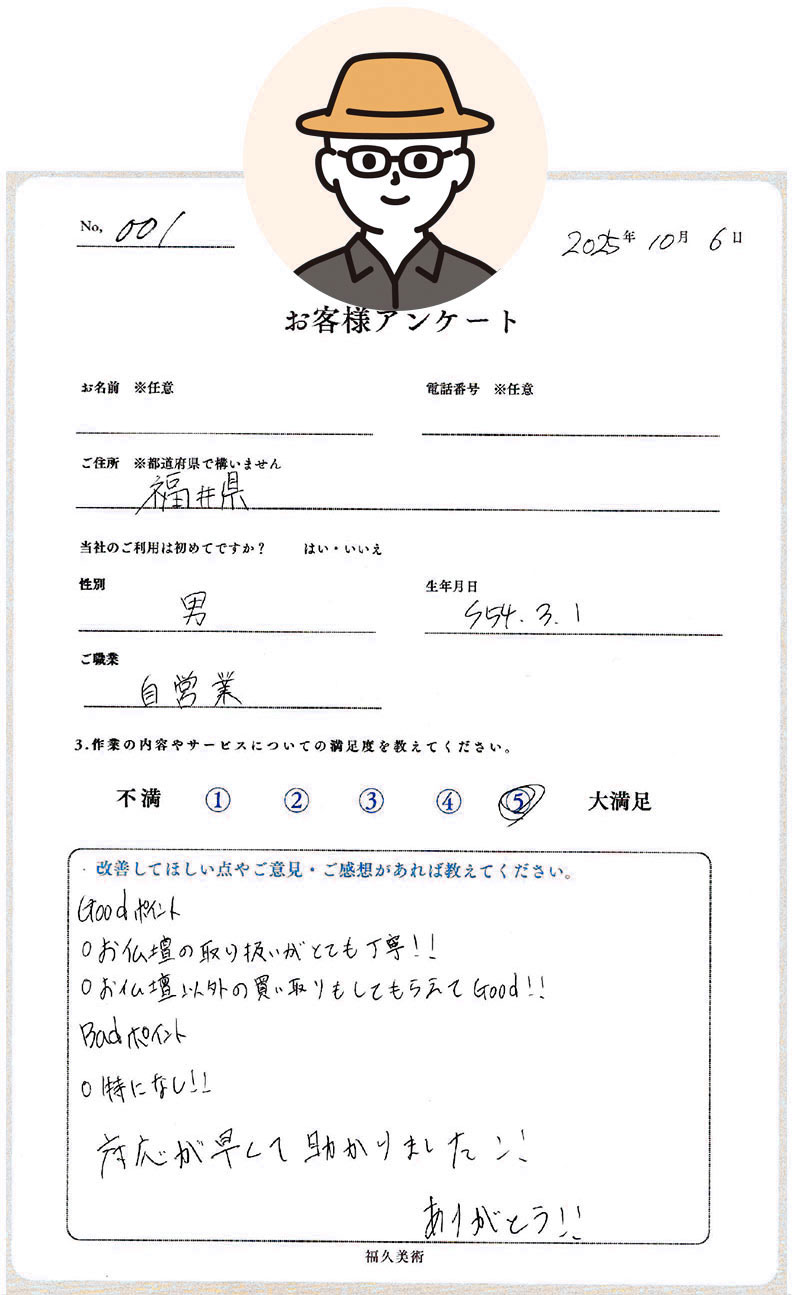 No, 001
2025年 10月 6日
お客様アンケート
お名前 ※任意
電話番号 ※任意
ご住所 ※都道府県で構いません
福井県
当社のご利用は初めてですか? はい・いいえ
性別
男
生年月日
S54.3.1
ご職業
自営業
3.作業の内容やサービスについての満足度を教えてください。
不満 ① ② ③ ④ ⑤ 大満足
・改善してほしい点やご意見・ご感想があれば教えてください。
Goodポイント
○お仏壇の取り扱いがとても丁寧!!
○お仏壇以外の買い取りもしてもらえてGood!!
Badポイント
○特になし!!
対応が早くて助かりました!!
ありがとう!!
福久美術